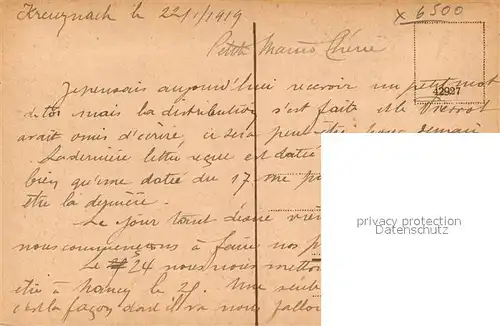 Kreuznach le 22/1/1919
x 6500
Petite Maman Chérie
42927
Je pensais aujourd'hui recevoir un petit mot
de toi mais la distribution s'est faite et le Pierrot
avait omis d'écrire, ce sera peut-être pour demain
La dernière lettre reçue est datée
bien qu'une datée du 17 me
être la dernière.
Le jour tant désiré
nous commençons à faire nos
Le 24 nous nous mettons
être à Nancy le 25. Une
c'est la façon dont il va nous
privater Ansichtskartenhändler
oldthing.de